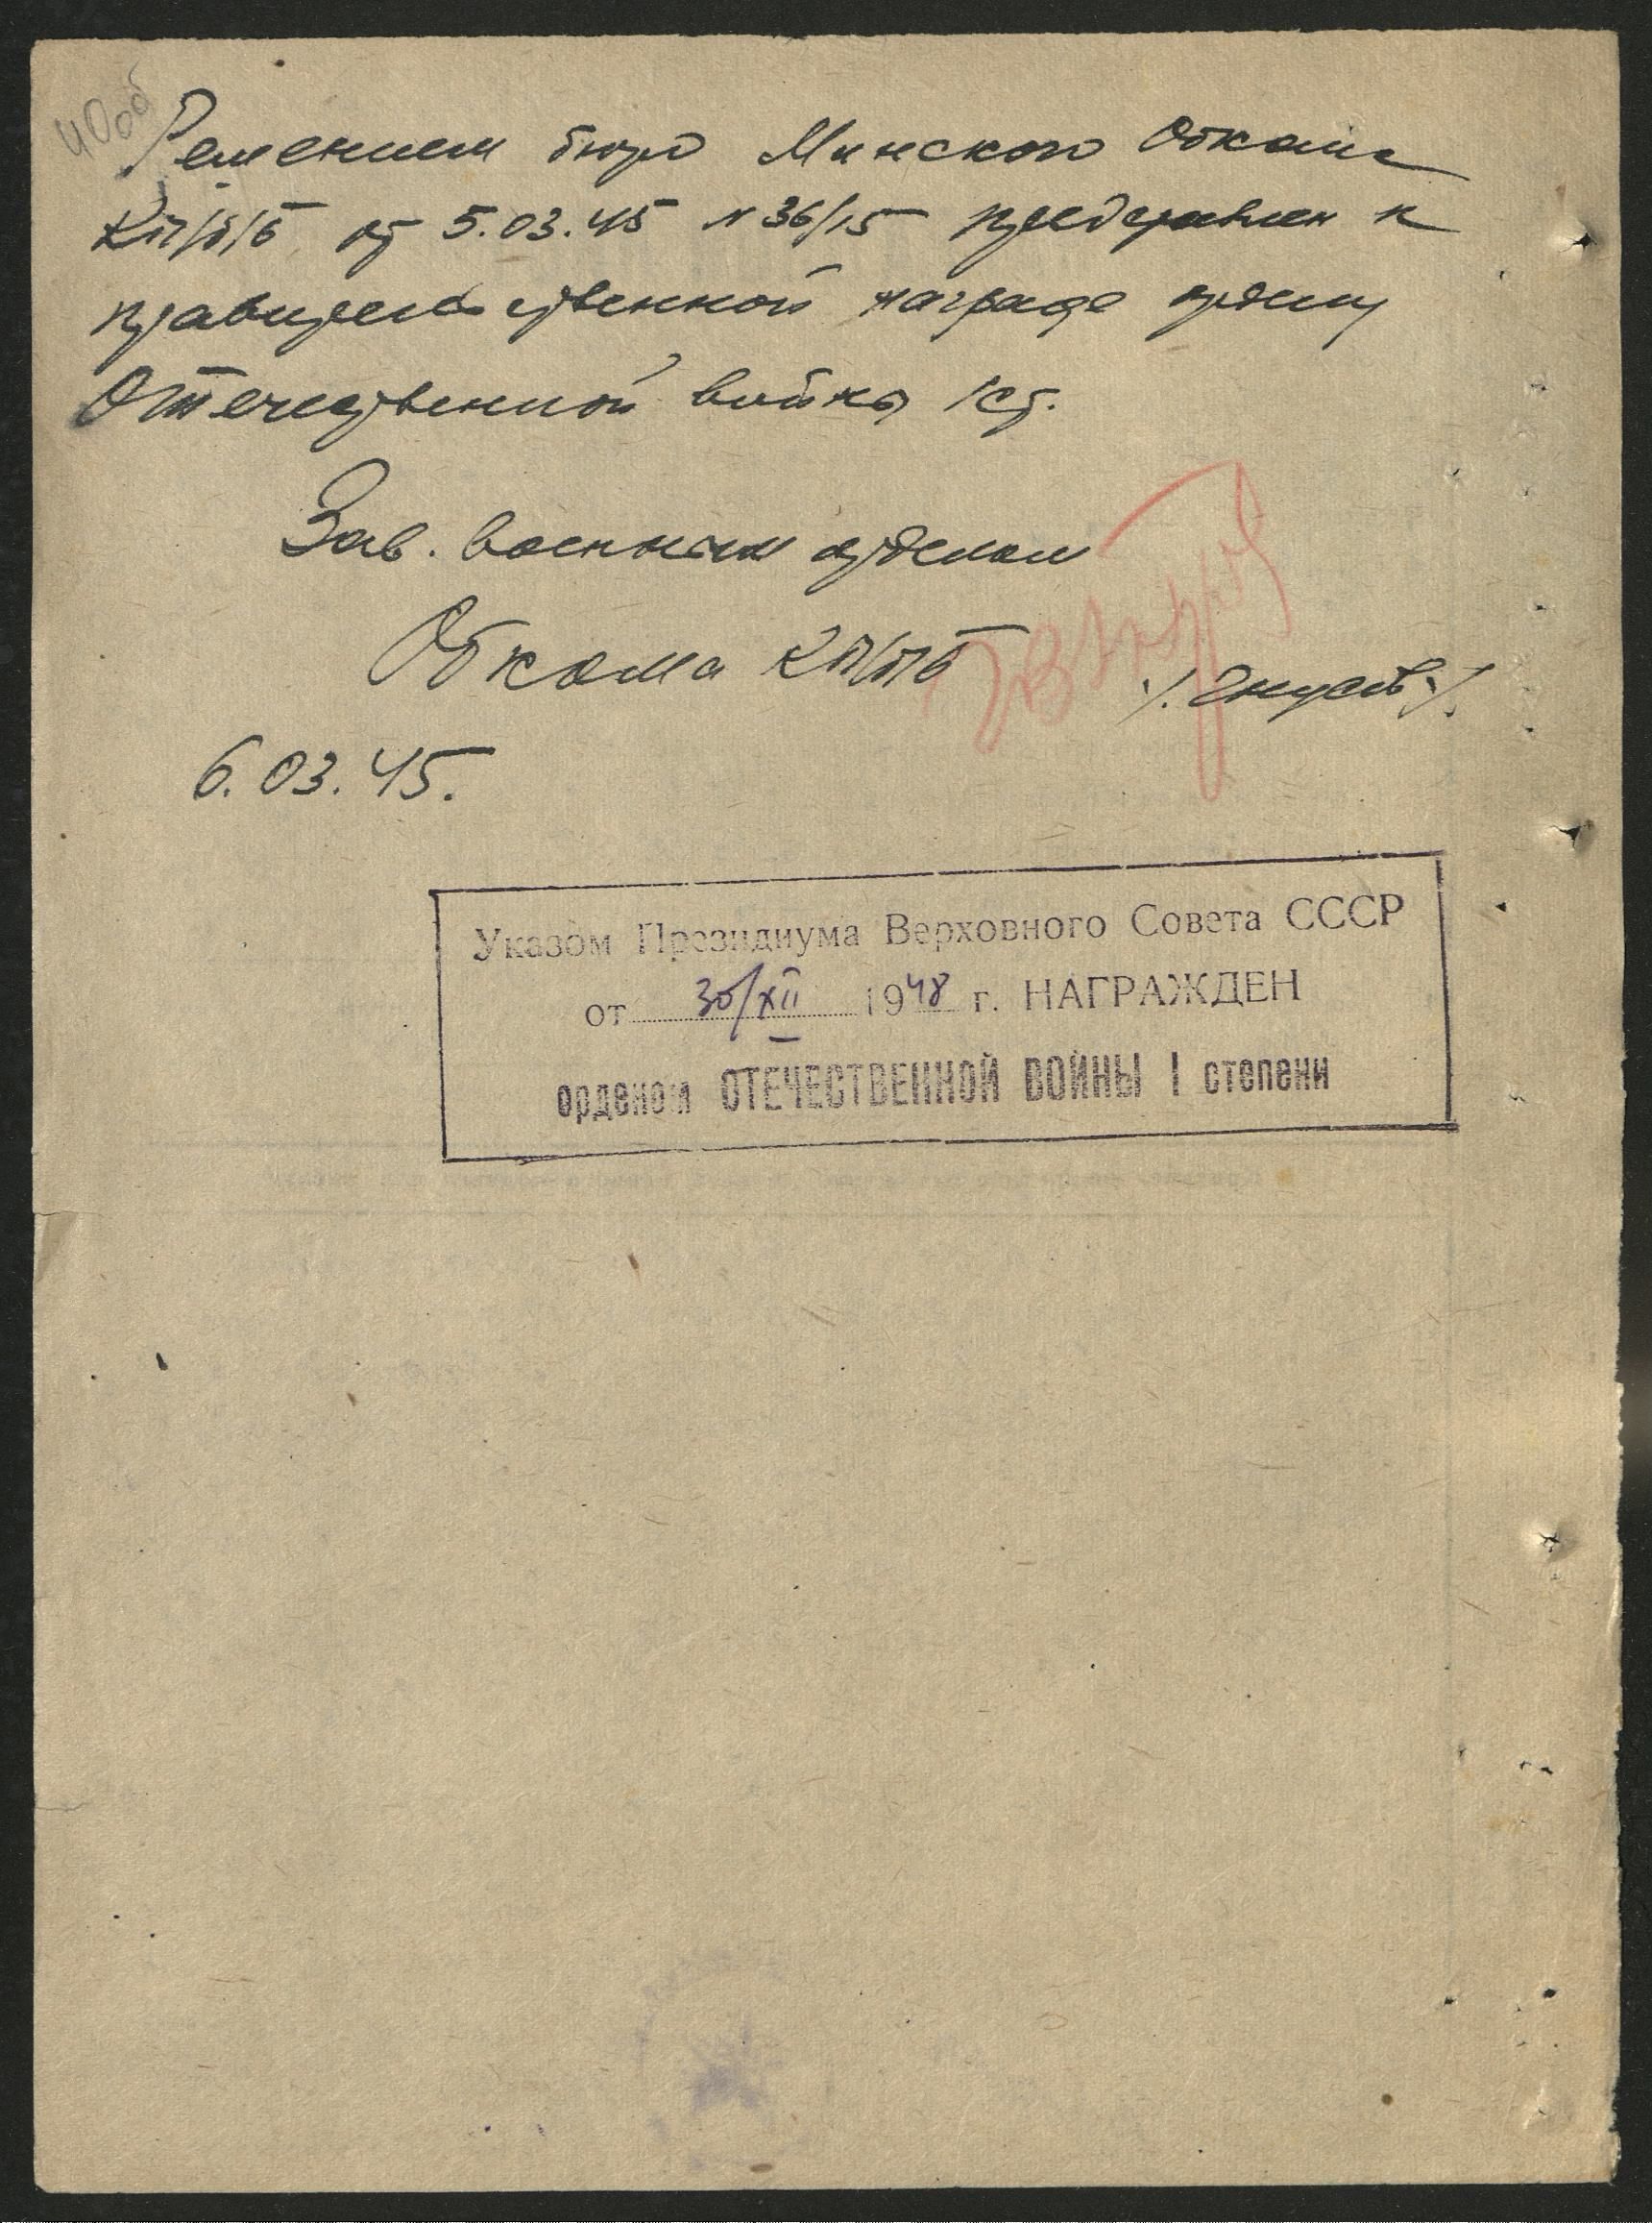 40об
Решением бюро Минского Обкома
КП/б/Б от 5.03.45 N 36/15 представлен к
правительственной награде ордену
Отечественной войны 1 ст.
Зав. военным отделом
Обкома КП/б/Б
6.03.45.
Указом Президиума Верховного Совета СССР
от 30/XII 1948 г. НАГРАЖДЕН
орденом ОТЕЧЕСТВЕННОЙ ВОЙНЫ I степени